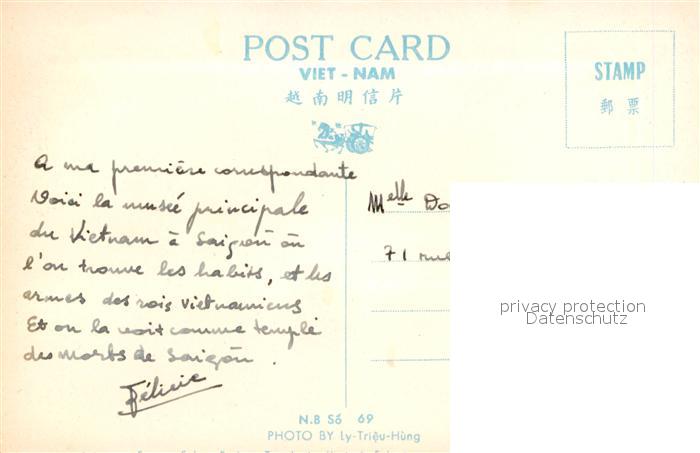 POST CARD
VIET - NAM
越南明信片
STAMP
郵票
A ma première correspondante
Voici la musée principale
du Vietnam à Saigon où
l'on trouve les habits, et les
armes des rois vietnamiens
Et on la voit comme temple
des morts de Saigon.
Félicie
Melle Do
71 rue
privacy protection
Datenschutz
N.B Số 69
PHOTO BY Ly-Triệu-Hùng